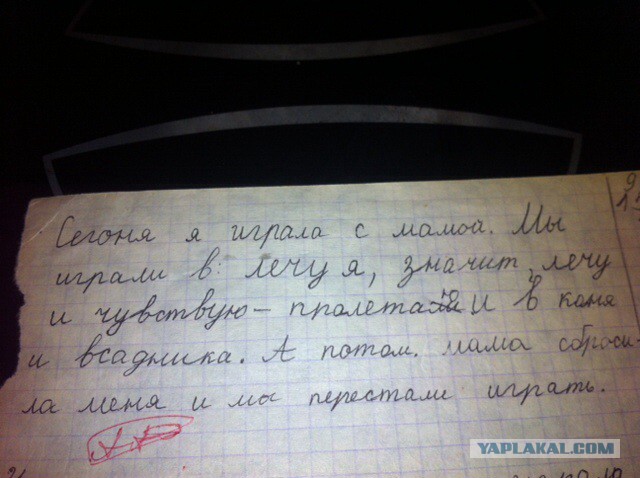 Сегоня я играла с мамой. Мы
играли в: лечу я, значит, лечу
и чувствую – пролетаю И в коня
и всадника. А потом. мама сброси-
ла меня и мы перестали играть.
YAPLAKAL.COM